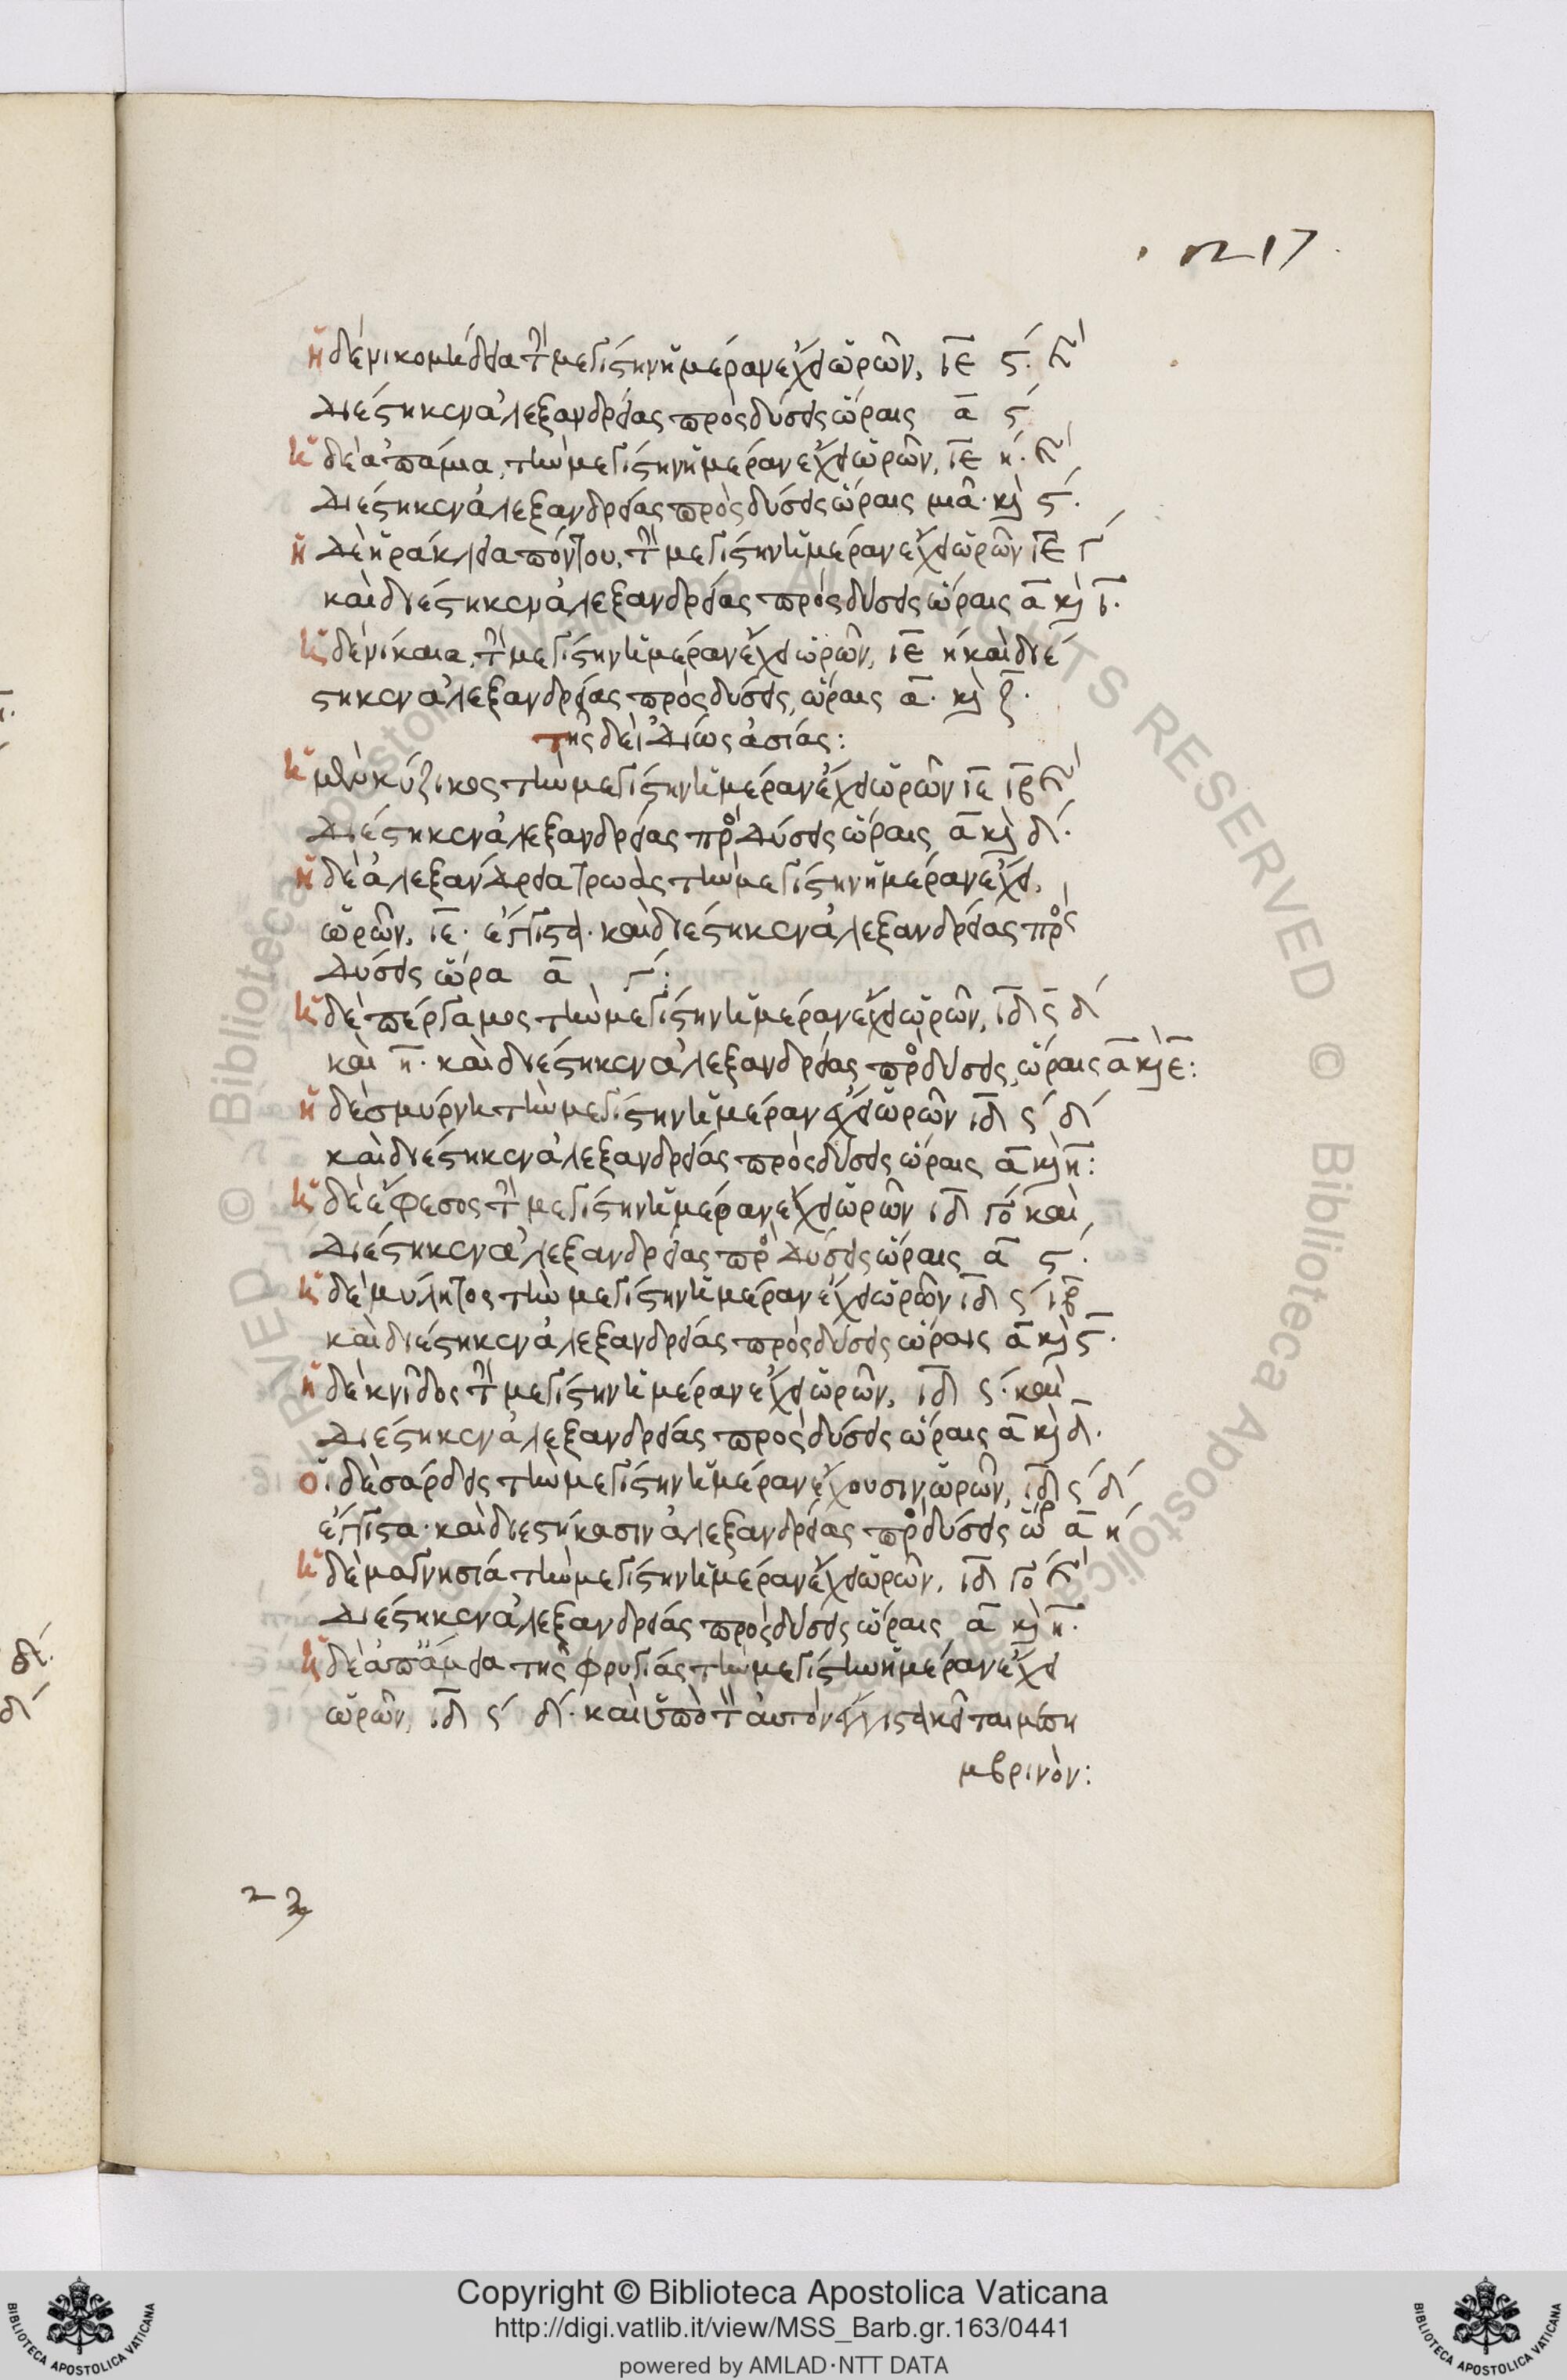 217
ἡ δὲ νικομήδεια τὴν μεγίστην ἡμέραν ἔχει ὡρῶν, ιε ς΄. καὶ
διέστηκεν ἀλεξανδρείας πρὸς δύσεις ὥραις α ς΄
ἡ δὲ ἀπάμια, τὴν μεγίστην ἡμέραν ἔχει ὡρῶν, ιε η΄. καὶ
διέστηκεν ἀλεξανδρείας πρὸς δύσεις ὥραις μιᾶ. καὶ ς΄.
ἡ δὲ ἡράκλεια πόντου, τὴν μεγίστην ἡμέραν ἔχει ὡρῶν ιε γ΄
καὶ διέστηκεν ἀλεξανδρείας πρὸς δύσεις ὥραις α καὶ ι.
ἡ δὲ νίκαια, τὴν μεγίστην ἡμέραν ἔχει ὡρῶν, ιε η΄ καὶ διέ
στηκεν ἀλεξανδρείας πρὸς δύσεις, ὥραις α. καὶ ζ.
τῆς δὲ ἰδίως ἀσίας:
ἡ μὲν κύζικος τὴν μεγίστην ἡμέραν ἔχει ὡρῶν ιε ιβ καὶ
διέστηκεν ἀλεξανδρείας πρὸς δύσεις ὥραις α καὶ δ΄.
ἡ δὲ ἀλεξάνδρεια τρωὰς τὴν μεγίστην ἡμέραν ἔχει,
ὡρῶν, ιε. ἔγγιστα. καὶ διέστηκεν ἀλεξανδρείας πρὸς
δύσεις ὥρα α
ἡ δὲ πέργαμος τὴν μεγίστην ἡμέραν ἔχει ὡρῶν, ιδ ς δ΄
καὶ η. καὶ διέστηκεν ἀλεξανδρείας πρὸς δύσεις, ὥραις α καὶ ε:
ἡ δὲ σμύρνη τὴν μεγίστην ἡμέραν ἔχει ὡρῶν ιδ ς΄ δ΄
καὶ διέστηκεν ἀλεξανδρείας πρὸς δύσεις ὥραις α καὶ η:
ἡ δὲ ἔφεσος τὴν μεγίστην ἡμέραν ἔχει ὡρῶν ιδ γο΄ καὶ
διέστηκεν ἀλεξανδρείας πρὸς δύσεις ὥραις α ς΄.
ἡ δὲ μύλητος τὴν μεγίστην ἡμέραν ἔχει ὡρῶν ιδ ς΄ ιβ
καὶ διέστηκεν ἀλεξανδρείας πρὸς δύσεις ὥραις α καὶ ς.
ἡ δὲ κνῖδος τὴν μεγίστην ἡμέραν ἔχει ὡρῶν, ιδ ς΄. καὶ
διέστηκεν ἀλεξανδρείας πρὸς δύσεις ὥραις α καὶ δ.
οἱ δὲ σάρδεις τὴν μεγίστην ἡμέραν ἔχουσιν ὡρῶν, ιδ ς΄ δ΄
ἔγγιστα. καὶ διεστήκασιν ἀλεξανδρείας πρὸς δύσεις ὥρ α η΄
ἡ δὲ μαγνησία τὴν μεγίστην ἡμέραν ἔχει ὡρῶν, ιδ γο΄ καὶ
διέστηκεν ἀλεξανδρείας πρὸς δύσεις ὥραις α καὶ η.
ἡ δὲ ἀπάμεια τῆς φρυγίας τὴν μεγίστην ἡμέραν ἔχει
ὡρῶν, ιδ ς΄ δ΄. καὶ ὑπὸ τὸν αὐτὸν ἔγγιστα κεῖται μεση
μβρινὸν:
Copyright © Biblioteca Apostolica Vaticana
http://digi.vatlib.it/view/MSS_Barb.gr.163/0441
powered by AMLAD·NTT DATA